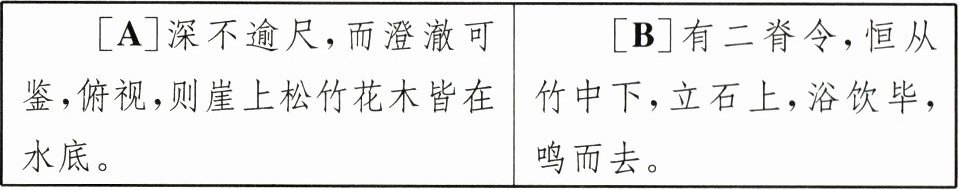 [A]深不逾尺，而澄澈可
鉴，俯视，则崖上松竹花木皆在
水底。
[B]有二脊令，恒从
竹中下，立石上，浴饮毕，
鸣而去。